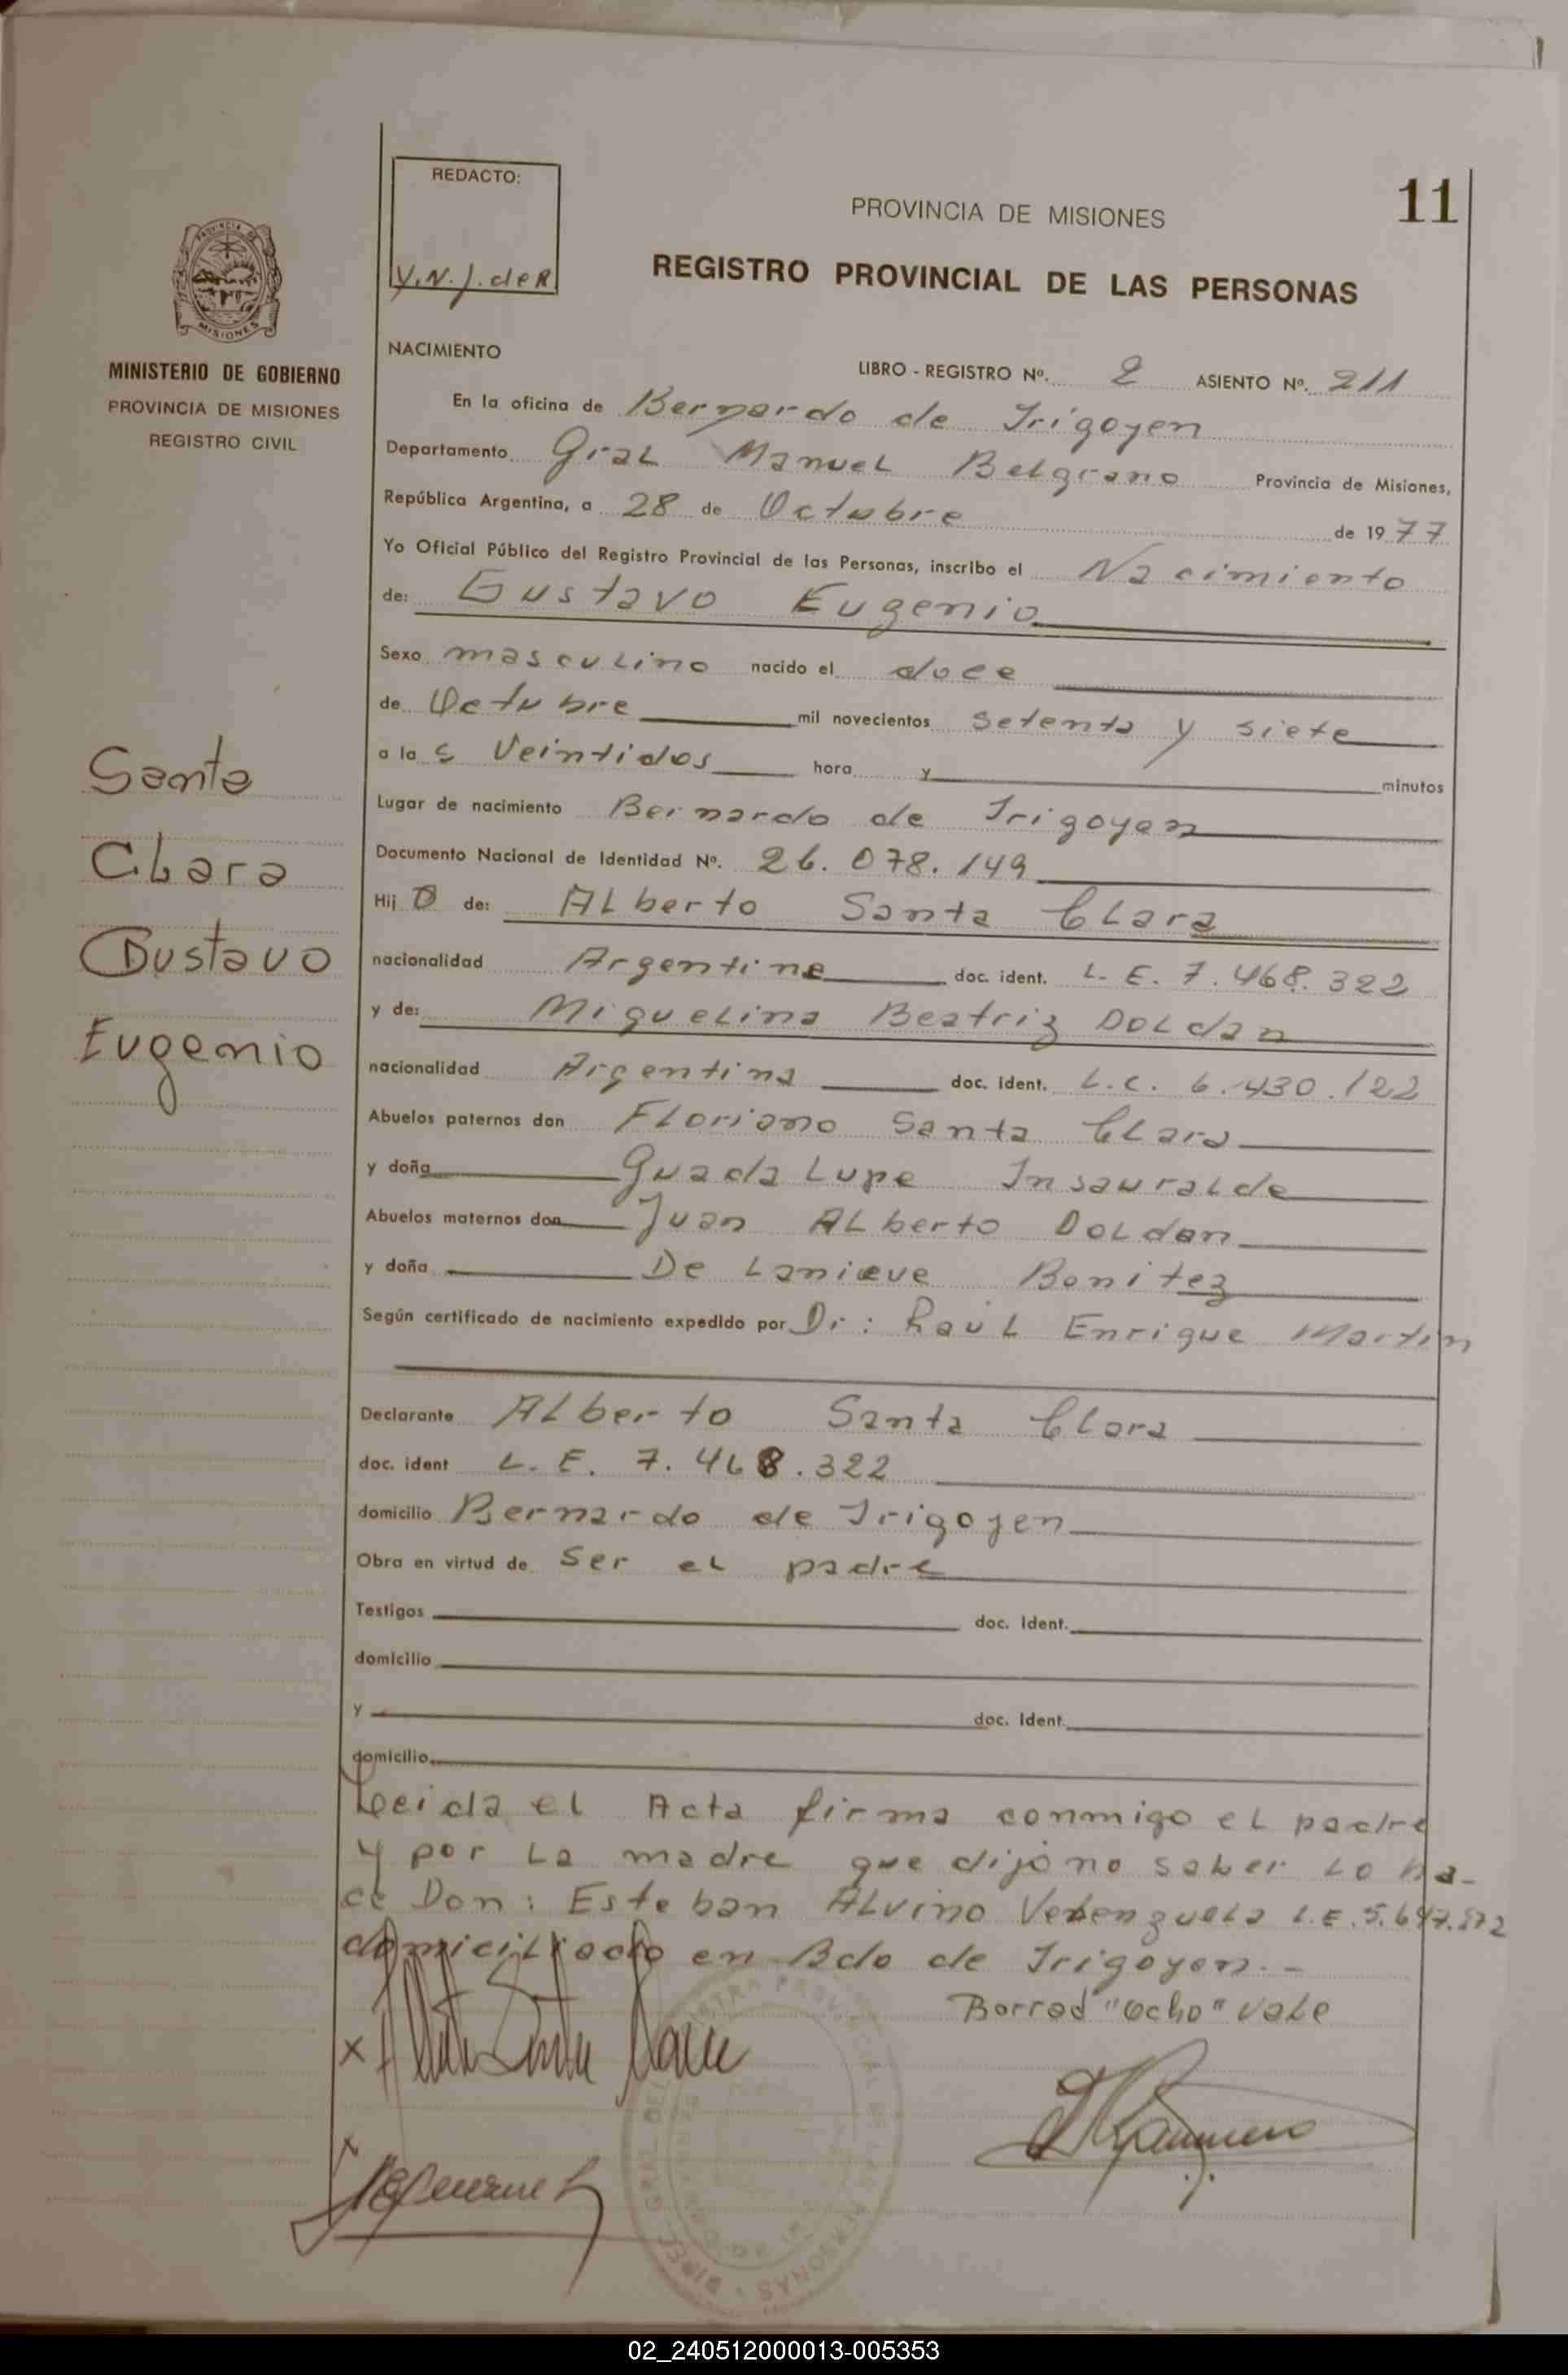 REDACTO:
Y.N.J. de R
PROVINCIA DE MISIONES
11
REGISTRO PROVINCIAL DE LAS PERSONAS
PROVINCIA DE
MISIONES
MINISTERIO DE GOBIERNO
PROVINCIA DE MISIONES
REGISTRO CIVIL
NACIMIENTO
LIBRO - REGISTRO Nº. 2 ASIENTO Nº. 211
En la oficina de Bernardo de Irigoyen
Departamento Gral Manuel Belgrano Provincia de Misiones,
República Argentina, a 28 de Octubre de 1977
Yo Oficial Público del Registro Provincial de las Personas, inscribo el Nacimiento
de: Gustavo Eugenio
Sexo masculino nacido el doce
de Octubre mil novecientos setenta y siete
a las Veintidos hora y minutos
Lugar de nacimiento Bernardo de Irigoyen
Documento Nacional de Identidad Nº. 26.078.149
Hijo de: Alberto Santa Clara
nacionalidad Argentina doc. ident. L.E. 7.468.322
y de: Miguelina Beatriz Doldan
nacionalidad Argentina doc. ident. L.C. 6.430.122
Abuelos paternos don Floriano Santa Clara
y doña Guadalupe Insauralde
Abuelos maternos don Juan Alberto Doldan
y doña De Lanieve Benitez
Según certificado de nacimiento expedido por Dr: Raúl Enrique Martin
Declarante Alberto Santa Clara
doc. ident L.E. 7.468.322
domicilio Bernardo de Irigoyen
Obra en virtud de ser el padre
Testigos doc. Ident.
domicilio
y doc. Ident.
domicilio
Leida el Acta firma conmigo el padre
y por la madre que dijo no saber lo ha-
ce Don: Esteban Alvino L.E.
domiciliado en Bdo de Irigoyen.-
Borrad "ocho" vale
x Alberto Santa Clara
x
Santa
Clara
Gustavo
Eugenio
02_240512000013-005353